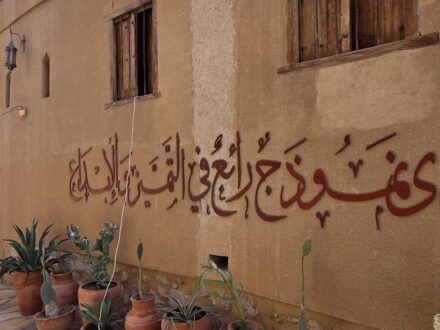 ى نموذج رائع في التميز بالإبداع